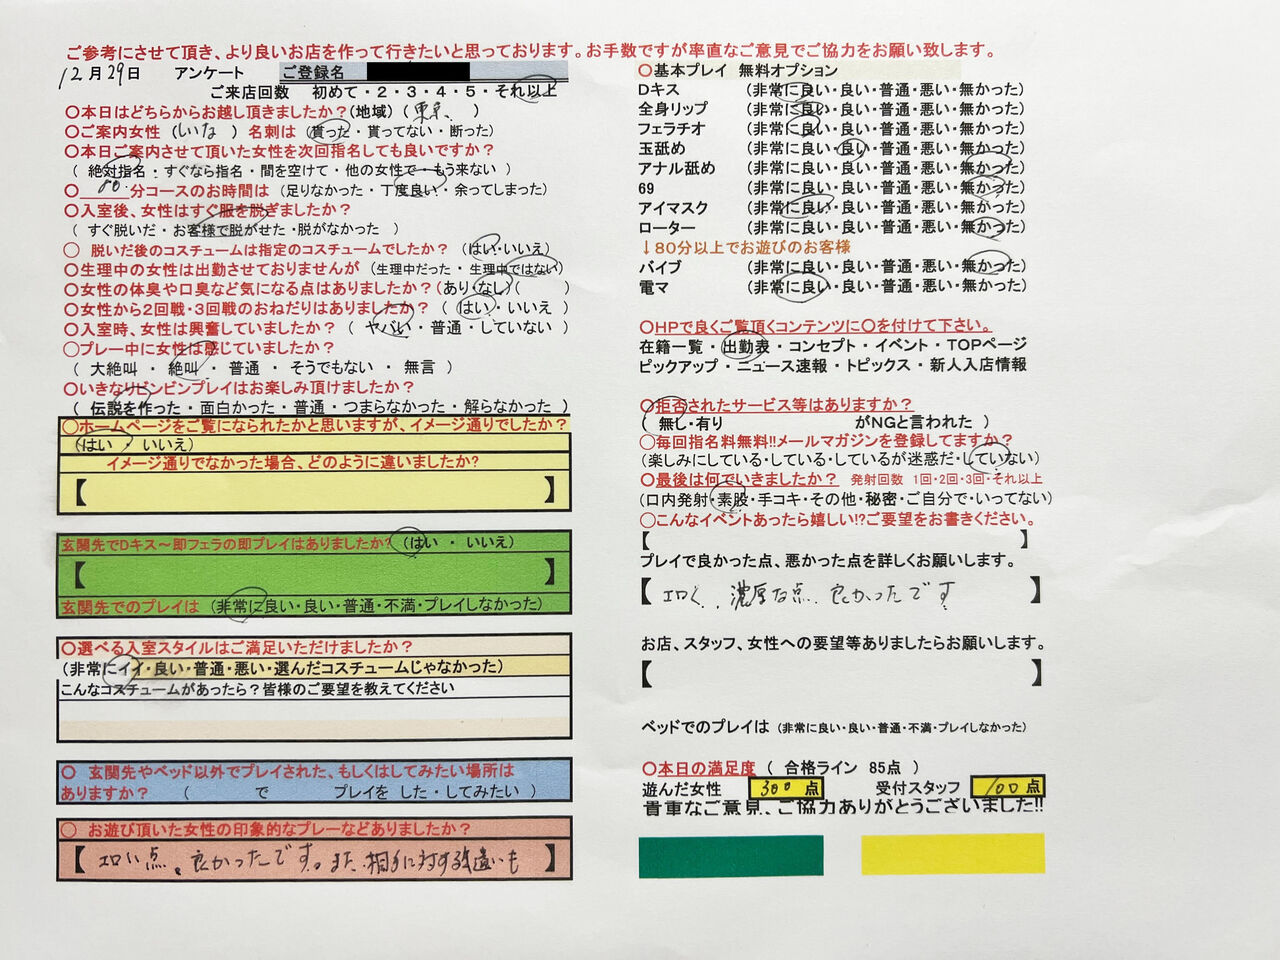 ご参考にさせて頂き、より良いお店を作って行きたいと思っております。お手数ですが率直なご意見でご協力をお願い致します。
12月29日 アンケート ご登録名
ご来店回数 初めて・2・3・4・5・それ以上
〇本日はどちらからお越し頂きましたか？(地域) (東京 )
〇ご案内女性 (しいな ) 名刺は (貰った・貰ってない・断った)
〇本日ご案内させて頂いた女性を次回指名しても良いですか？
( 絶対指名・すぐなら指名・間を空けて・他の女性で・もう来ない )
〇 80 分コースのお時間は (足りなかった・丁度良い・余ってしまった)
〇入室後、女性はすぐ服を脱ぎましたか？
( すぐ脱いだ・お客様で脱がせた・脱がなかった )
〇 脱いだ後のコスチュームは指定のコスチュームでしたか？ (はい・いいえ)
〇生理中の女性は出勤させておりませんが (生理中だった・生理中ではない)
〇女性の体臭や口臭など気になる点はありましたか？(あり・なし)( )
〇女性から2回戦・3回戦のおねだりはありましたか？ ( はい・いいえ )
〇入室時、女性は興奮していましたか？ ( ヤバい・普通・していない )
〇プレー中に女性は感じていましたか？
( 大絶叫 ・ 絶叫 ・ 普通 ・ そうでもない ・ 無言 )
〇いきなりビンビンプレイはお楽しみ頂けましたか？
( 伝説を作った・面白かった・普通・つまらなかった・解らなかった )
〇ホームページをご覧になられたかと思いますが、イメージ通りでしたか？
(はい ・ いいえ)
イメージ通りでなかった場合、どのように違いましたか?
【 】
玄関先でDキス～即フェラの即プレイはありましたか？ (はい ・ いいえ)
【 】
玄関先でのプレイは (非常に良い・良い・普通・不満・プレイしなかった)
〇選べる入室スタイルはご満足いただけましたか？
(非常にイイ・良い・普通・悪い・選んだコスチュームじゃなかった)
こんなコスチュームがあったら？皆様のご要望を教えてください
〇 玄関先やベッド以外でプレイされた、もしくはしてみたい場所は
ありますか？ ( で プレイを した・してみたい )
〇 お遊び頂いた女性の印象的なプレーなどありましたか？
【 エロい点、良かったです。また、相手に対する気遣いも 】
〇基本プレイ 無料オプション
Dキス (非常に良い・良い・普通・悪い・無かった)
全身リップ (非常に良い・良い・普通・悪い・無かった)
フェラチオ (非常に良い・良い・普通・悪い・無かった)
玉舐め (非常に良い・良い・普通・悪い・無かった)
アナル舐め (非常に良い・良い・普通・悪い・無かった)
69 (非常に良い・良い・普通・悪い・無かった)
アイマスク (非常に良い・良い・普通・悪い・無かった)
ローター (非常に良い・良い・普通・悪い・無かった)
↓80分以上でお遊びのお客様
バイブ (非常に良い・良い・普通・悪い・無かった)
電マ (非常に良い・良い・普通・悪い・無かった)
〇HPで良くご覧頂くコンテンツに〇を付けて下さい。
在籍一覧・出勤表・コンセプト・イベント・TOPページ
ピックアップ・ニュース速報・トピックス・新人入店情報
〇拒否されたサービス等はありますか？
( 無し・有り がNGと言われた )
〇毎回指名料無料!!メールマガジンを登録してますか？
(楽しみにしている・している・しているが迷惑だ・していない)
〇最後は何でいきましたか？ 発射回数 1回・2回・3回・それ以上
(口内発射・素股・手コキ・その他・秘密・ご自分で・いってない)
〇こんなイベントあったら嬉しい!?ご要望をお書きください。
【 】
プレイで良かった点、悪かった点を詳しくお願いします。
【 エロく、濃厚な点、良かったです 】
お店、スタッフ、女性への要望等ありましたらお願いします。
【 】
ベッドでのプレイは (非常に良い・良い・普通・不満・プレイしなかった)
〇本日の満足度 ( 合格ライン 85点 )
遊んだ女性 300 点 受付スタッフ 100 点
貴重なご意見、ご協力ありがとうございました!!